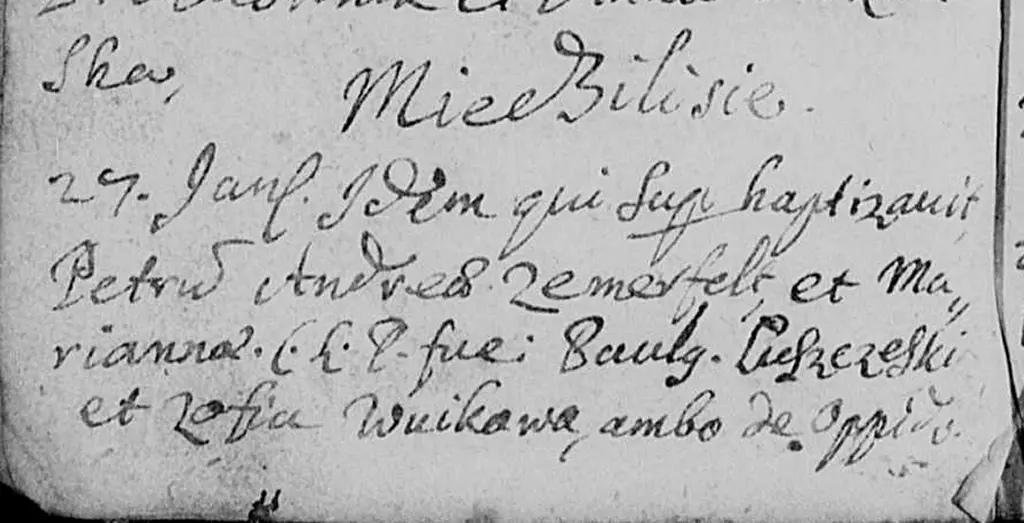 Ska,
Mice Bilisie.
27. Janȝ. Idem qui sup baptizauit
Petrū Andreæ Zemerfelt, et Ma,,
riannæ. C. L. P. fue: Paulg. Puszczeski
et Zofia Wnikowa, ambo de Oppido.